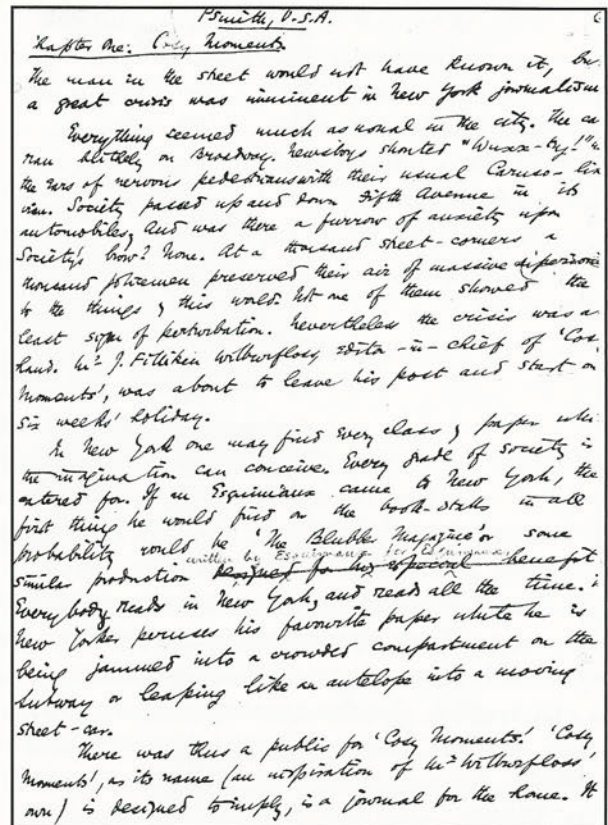 Psmith, U.S.A. 6
Chapter One: Cosy Moments.
The man in the street would not have known it, bu
a great crisis was imminent in New York journalism
Everything seemed much as usual in the city. The ca
ran blithely on Broadway. Newsboys shouted "Wuxx-try!" in
the ears of nervous pedestrians with their usual Caruso-lik
vim. Society passed up and down Fifth Avenue in its
automobiles, and was there a furrow of anxiety upon
Society's brow? None. At a thousand street-corners a
thousand policemen preserved their air of massive
to the things of this world. Not one of them showed the
least sign of perturbation. Nevertheless the crisis was a
hand. Mr J. Fillikin Wilberfloss, editor-in-chief of 'Cos
Moments', was about to leave his post and start on
six weeks' holiday.
In New York one may find every class of paper whi
the imagination can conceive. Every grade of society is
catered for. If an Esquimaux came to New York, the
first thing he would find on the book-stalls in all
probability would be 'The Blubber Magazine' or some
written by Esquimaux for Esquimaux
similar production designed for his especial benefit
Everybody reads in New York, and reads all the time.
New Yorker peruses his favourite paper while he is
being jammed into a crowded compartment on the
subway or leaping like an antelope into a moving
street-car.
There was thus a public for 'Cosy Moments'. 'Cosy
Moments', as its name (an inspiration of Mr Wilberfloss'
own) is designed to imply, is a journal for the home. It